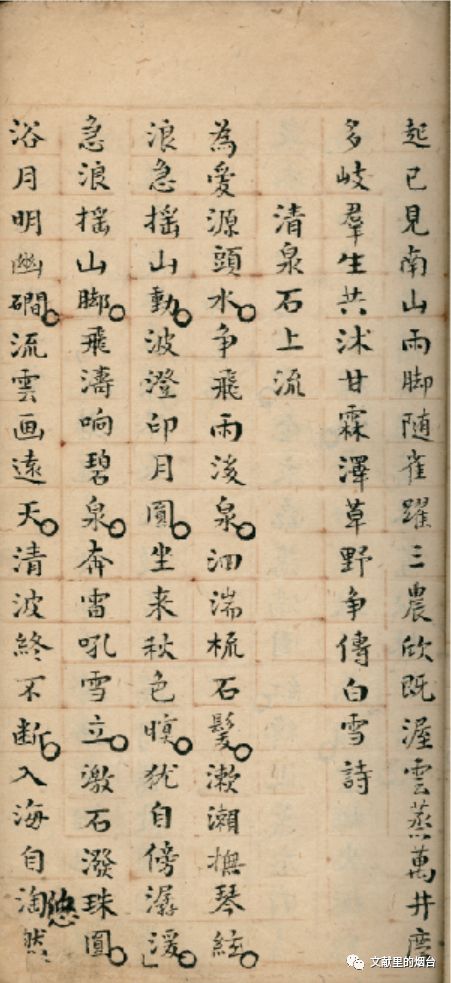 起已見南山雨脚随雀躍三農欣既渥雲蒸萬井庶
多岐羣生共沭甘霖澤草野争傳白雪詩
清泉石上流
為愛源頭水争飛雨後泉泗湍梳石髮漱瀨撫琴絃
浪急揺山動波澄印月圓坐来秋色暝犹自傍潺湲
急浪揺山脚飛濤响碧泉奔雷吼雪立激石潑珠圓
浴月明幽磵流雲画遠天清波終不断入海自淘然
悠
文献里的烟台